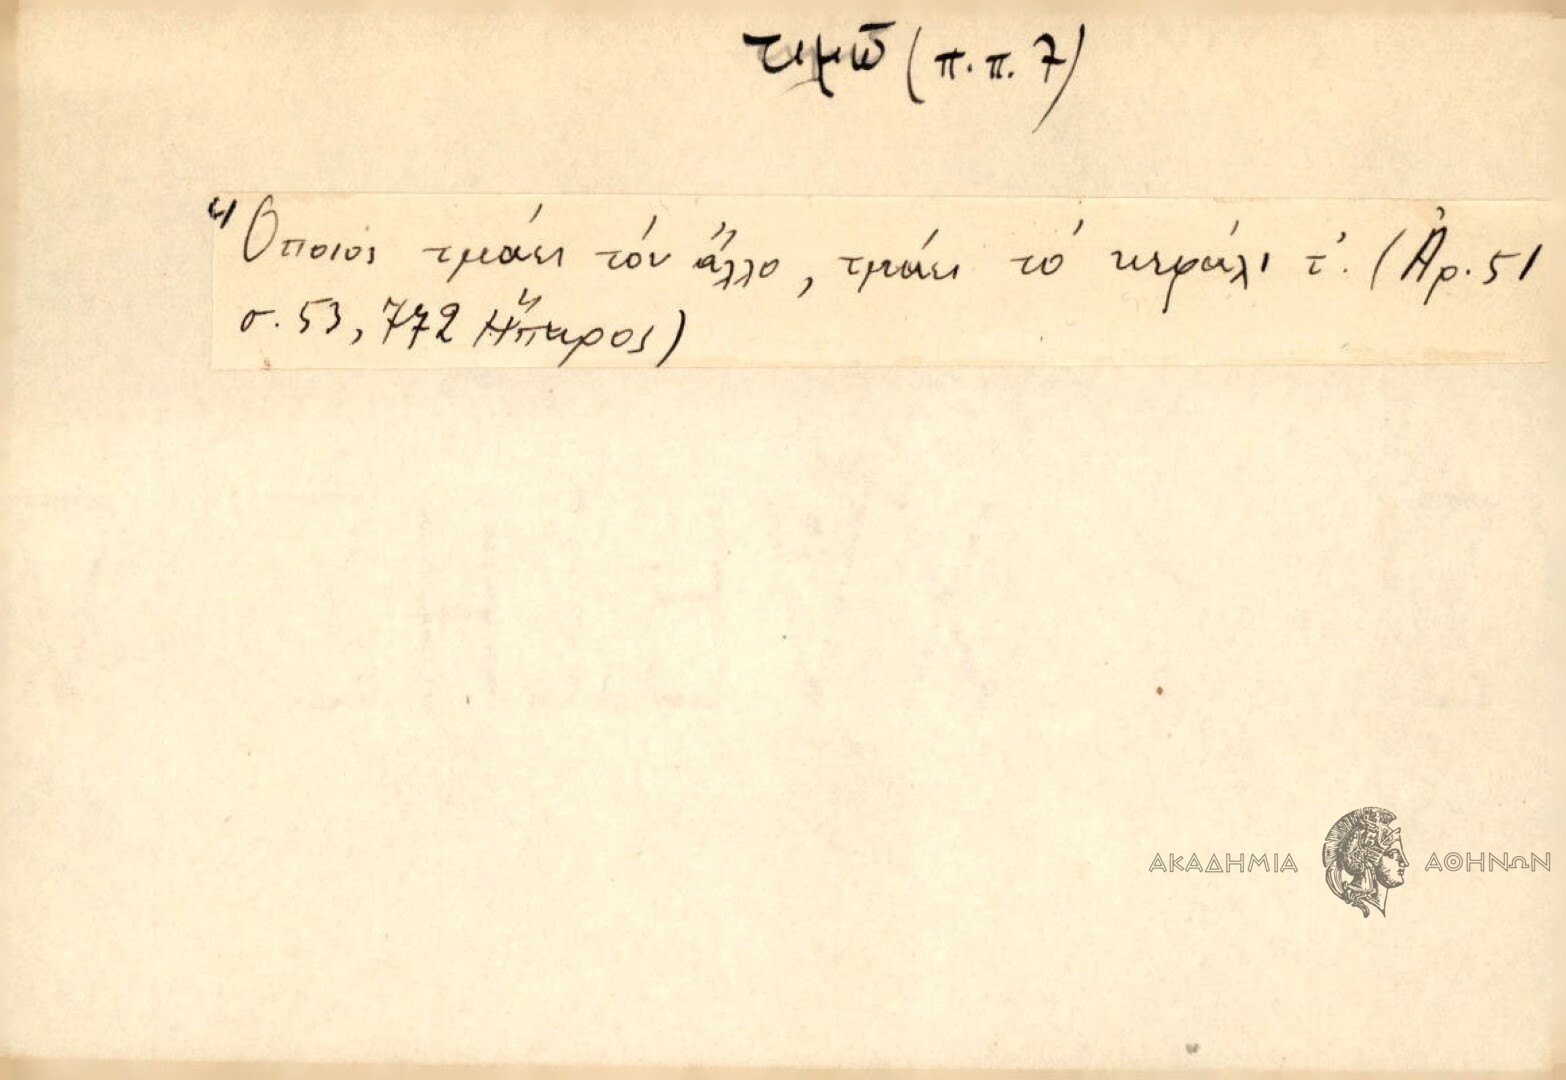 τιμῶ (π.π. 7)
Ὅποιος τμάει τόν ἄλλο, τμάει τό κεφάλι τ'. (Ἀρ. 51
σ. 53, 772 Ἤπειρος)
ΑΚΑΔΗΜΙΑ ΑΘΗΝΩΝ